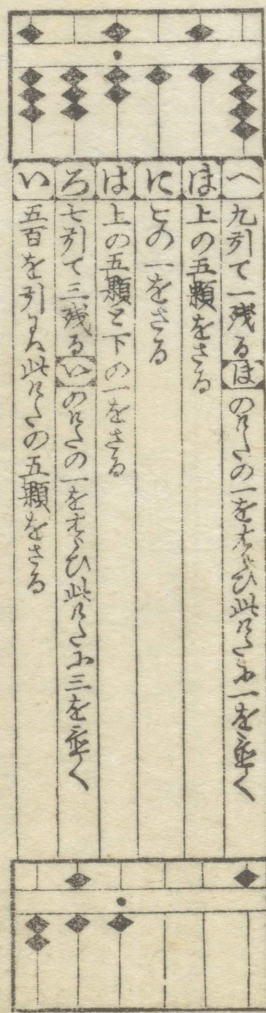 へ 九引て一残る(ほ)のけたの一をはらひ此けたに一を置く
ほ 上の五顆をさる
に 下の一をさる
は 上の五顆と下の一をさる
ろ 七引て三残る(い)のけたの一をはらひ此けたに三を置く
い 五百を引くは此けたの五顆をさる